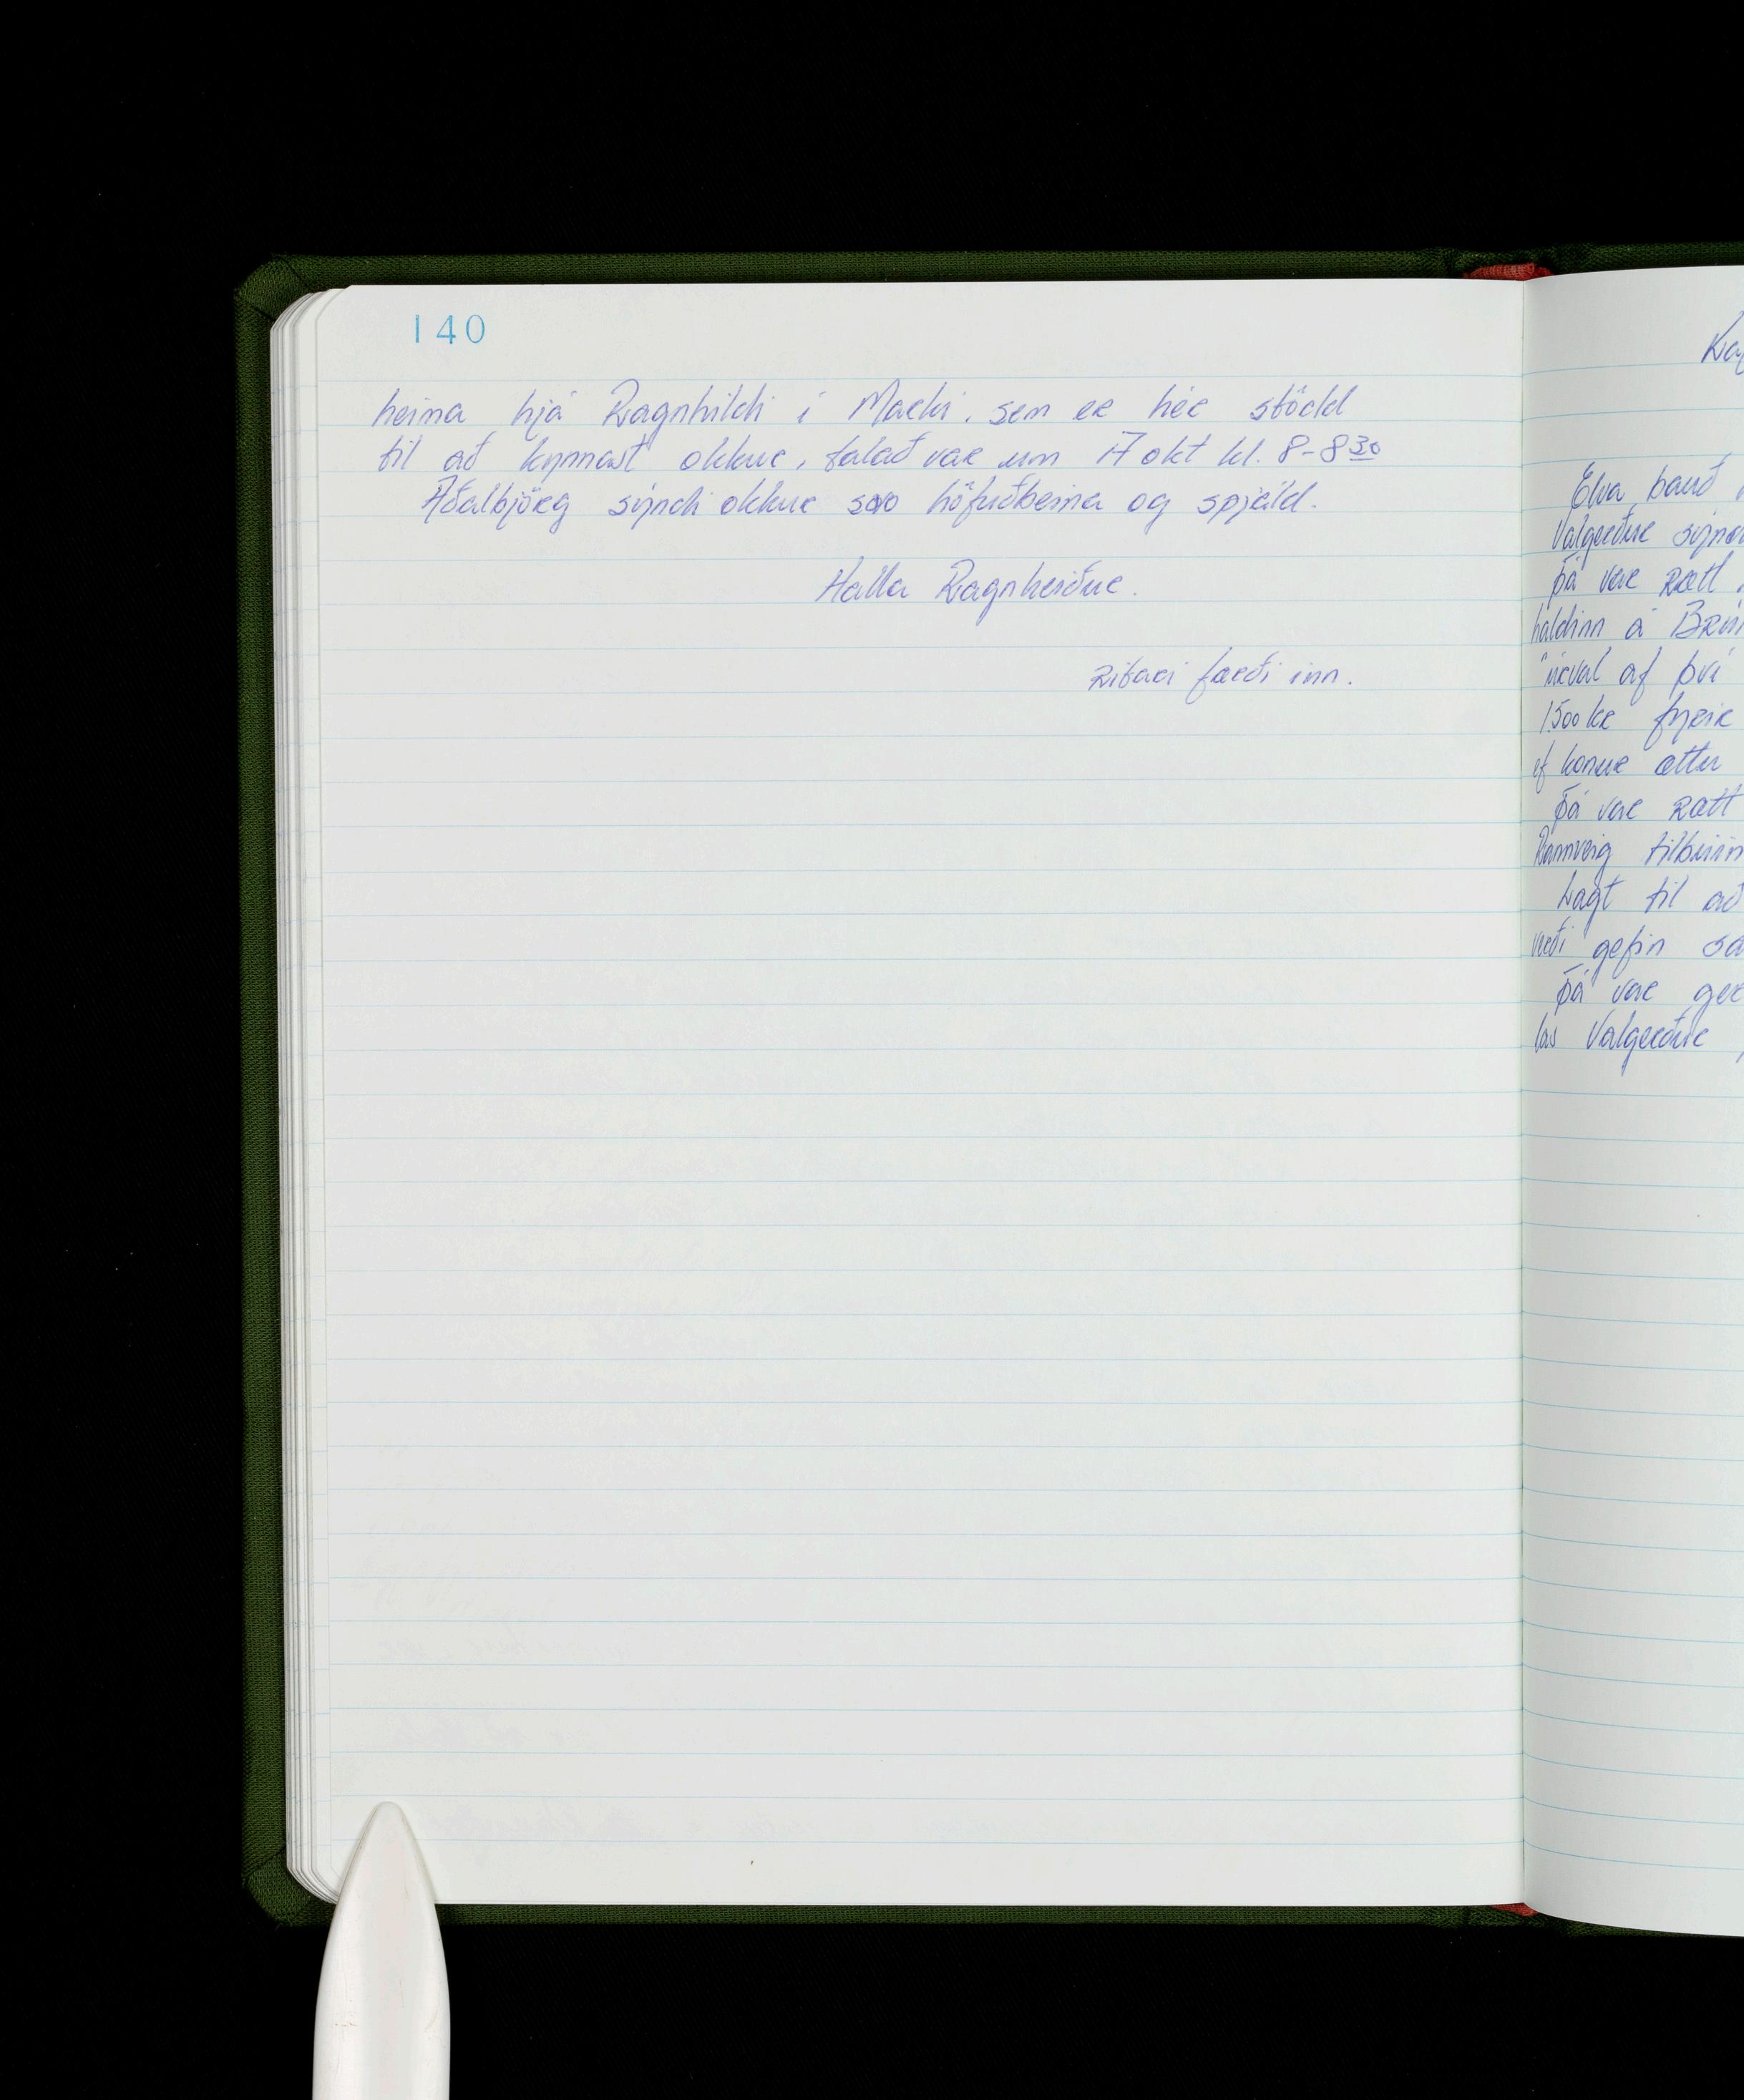 140
heima hjá Ragnhildi í Marki. sem er hér stödd
til að kynnast okkur, talað var um 17 okt kl. 8-8 30
Aðalbjörg sýndi okkur svo höfuðbeina og spjald.
Halla Ragnheiður.
Ritari færði inn.
Elva bauð
Valgerður
Þá var rætt
haldinn á
úrval af því
1500 kr fyrir
ef konur ættu
Þá var rætt
Rannveig
Lagt til að
verði gefin
Þá var
las Valgerður